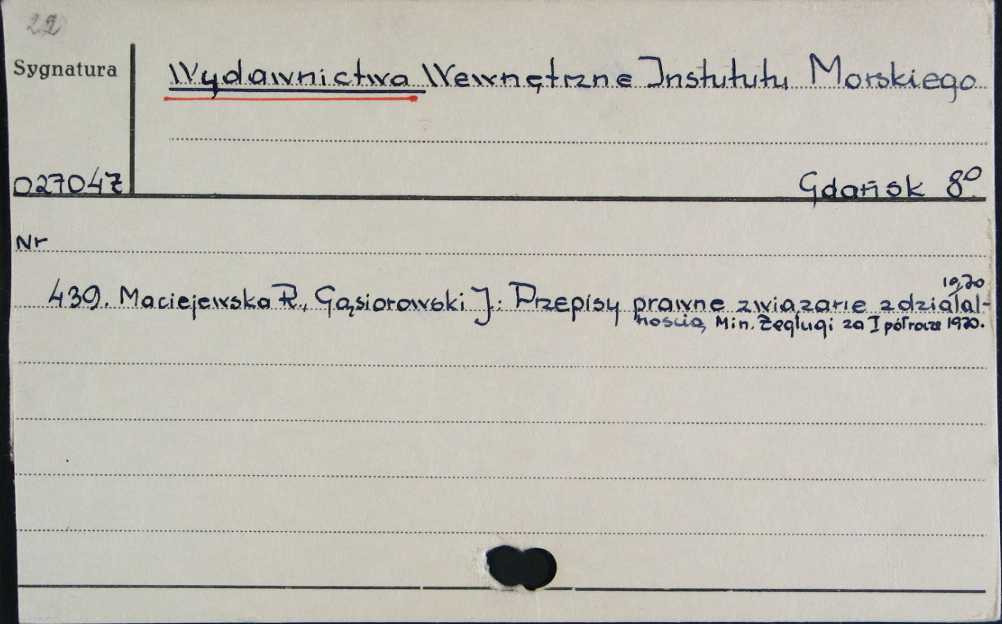 22
Sygnatura
Wydawnictwa Wewnętrzne Instututu Morskiego
027047
Gdańsk 8º
Nr
1970
439. Maciejewska R., Gąsiorowski J.: Przepisy prawne związane z działal-
nością Min. Żeglugi za I półrocze 1970.